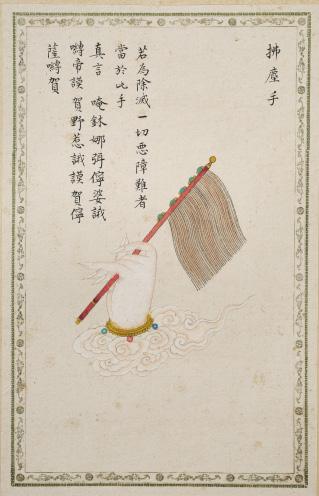 拂塵手
若為除滅一切惡障難者
當於此手
真言 唵鉢娜弭儜婆誐
嚩帝謨賀野惹誐謨賀儜
薩嚩賀